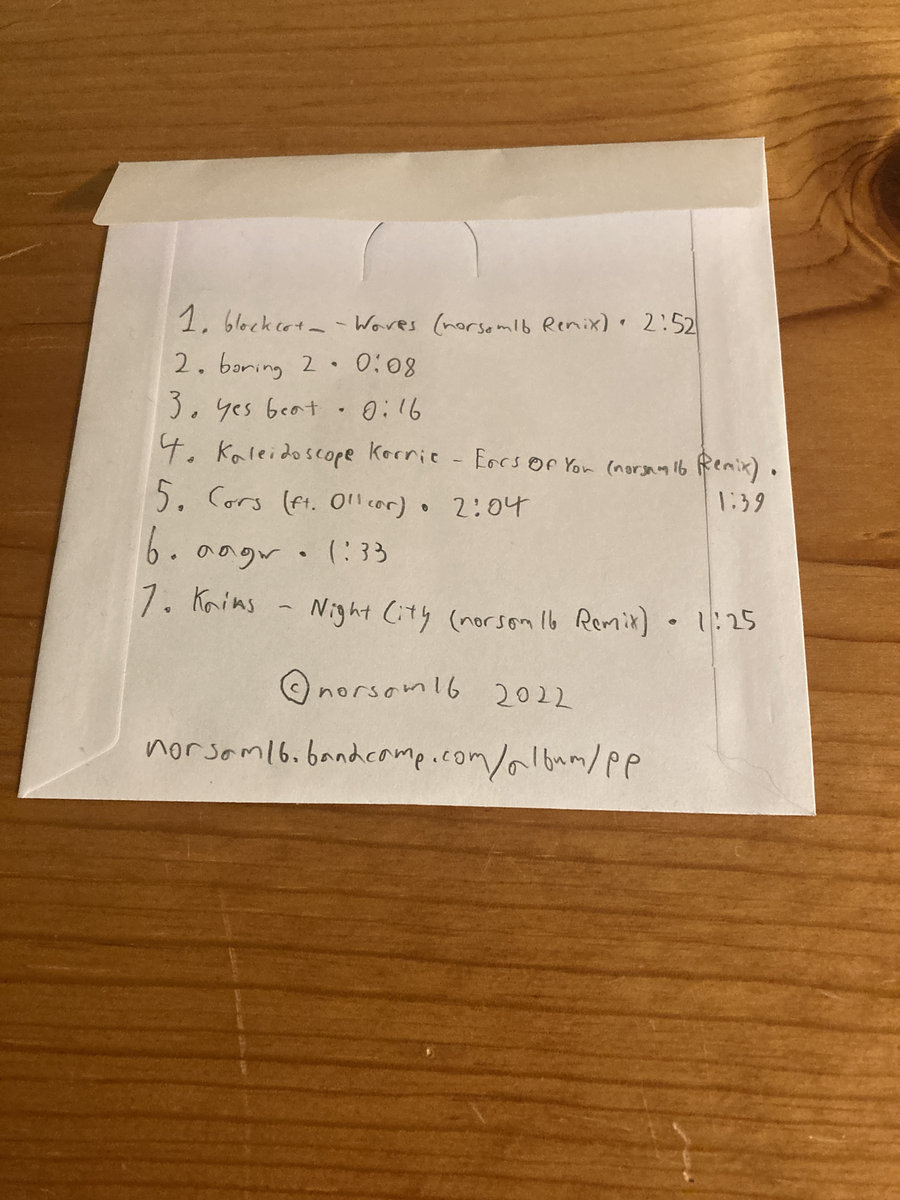 1. blackcat_ - Waves (norsam16 Remix) • 2:52
2. boring 2 • 0:08
3. yes beat • 0:16
4. Kaleidoscope Karrie - Ears Of You (norsam16 Remix) •
1:39
5. Cars (ft. Ollcar) • 2:04
6. aagw • 1:33
7. Kains - Night City (norsam16 Remix) • 1:25
©norsam16 2022
norsam16.bandcamp.com/album/pp